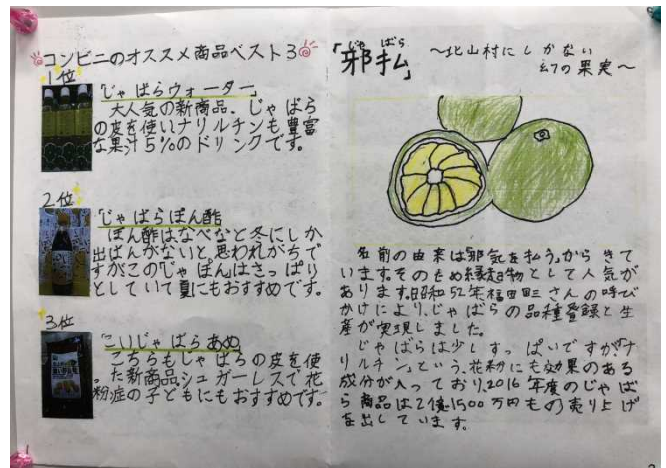 コンビニのオススメ商品ベスト3
1位
「じゃばらウォーター」
大人気の新商品.じゃばら
の皮を使いナリルチンも豊富
な果汁5%のドリンクです。
2位
「じゃばらぽん酢」
ぽん酢はなべなど冬にしか
出ばんがないと、思われがちで
すがこの「じゃぽん」はさっぱり
としていて夏にもおすすめです。
3位
「こいじゃばらあめ」
こちらもじゃばらの皮を使
った新商品。シュガーレスで花
粉症の子どもにもおすすめです。
じゃばら
「邪払」
~北山村にしかない
幻の果実~
名前の由来は「邪気を払う」から きて
います。そのため縁起物として人気が
あります。昭和52年福田さんの呼び
かけにより、じゃばらの品種登録と生
産が実現しました。
じゃばらは少しすっぱいですが「ナ
リルチン」という、花粉にも効果のある
成分が入っており、2016年度のじゃば
ら商品は2億1500万円もの売り上げ
を出しています。